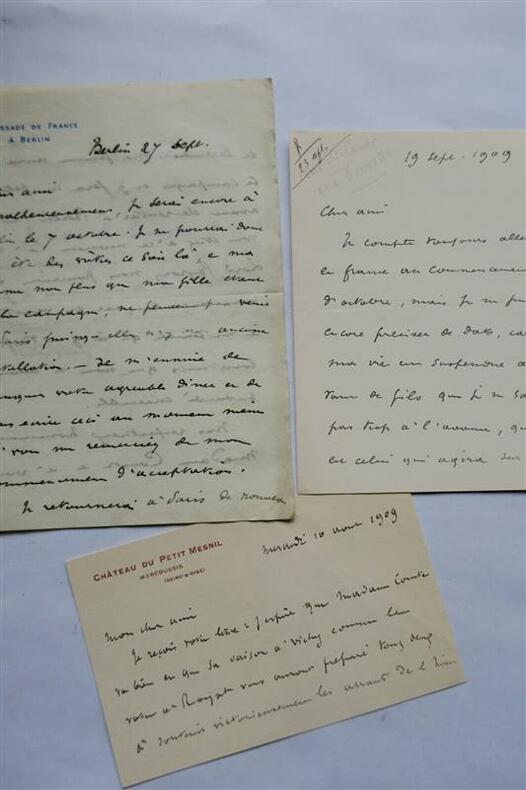 SSADE DE FRANCE
A BERLIN
Berlin 27 Sept.
ami
malheureusement, je serai encore à
le 7 octobre. Je ne pourrai donc
être des vôtres ce soir là, et ma
non plus que ma fille étant
la campagne, ne peuvent pas venir
Paris puisqu'elles n'y aucune
tallation. — Je m'ennuie de
votre agréable diner et de
écrire ceci au moment même
vous me remerciez de mon
d'acceptation.
Je retournerai à Paris de nouveau
R
23 spt.
19 sept. 1909
Cher ami
Je compte toujours alle
en france au commencemen
d'octobre, mais je ne pu
encore préciser de date, ca
ma vie est suspendue à
tant de fils que je ne sa
pas trop à l'avance, qu
est celui qui agira sur
CHÂTEAU DU PETIT MESNIL
MARCOUSSIS
(SEINE-&-OISE)
Mercredi 10 aout 1909
Mon cher ami
Je reçois votre lettre : J'espère que Madame Comte
va bien et que sa saison à Vichy comme la
votre à Royat vous auront préparé tous deux
à soutenir victorieusement les assauts de l'hiver